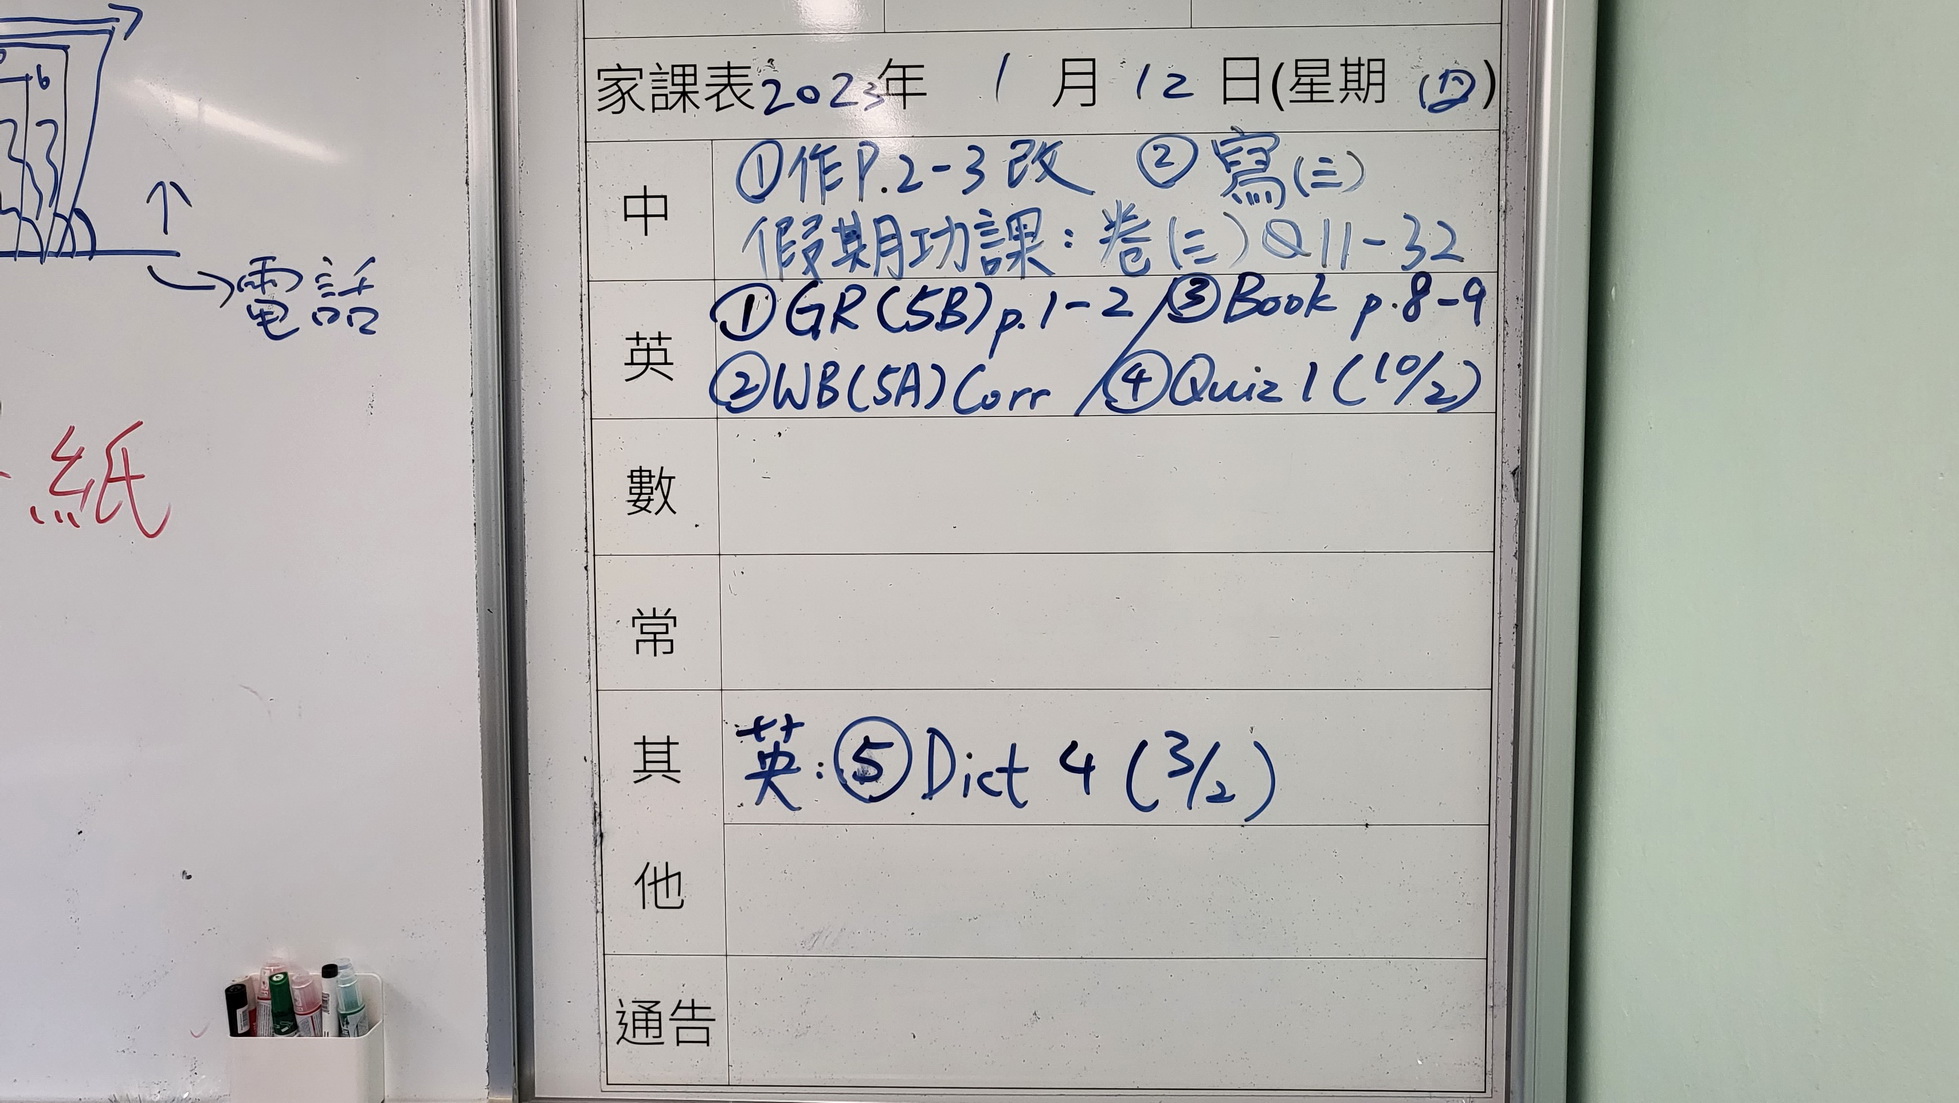 6
電話
紙
家課表2023年 1 月 12 日(星期 )
中
①作P.2-3改 ②寫(三)
假期功課:卷(三)Q11-32
英
①GR(5B)p.1-2/③Book p.8-9
②WB(5A)Corr/④Quiz 1(10/2)
數
常
其他
英:⑤Dict 4 (3/2)
通告